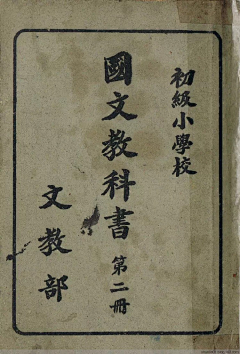 初級小學校
國文教科書 第二冊
文教部